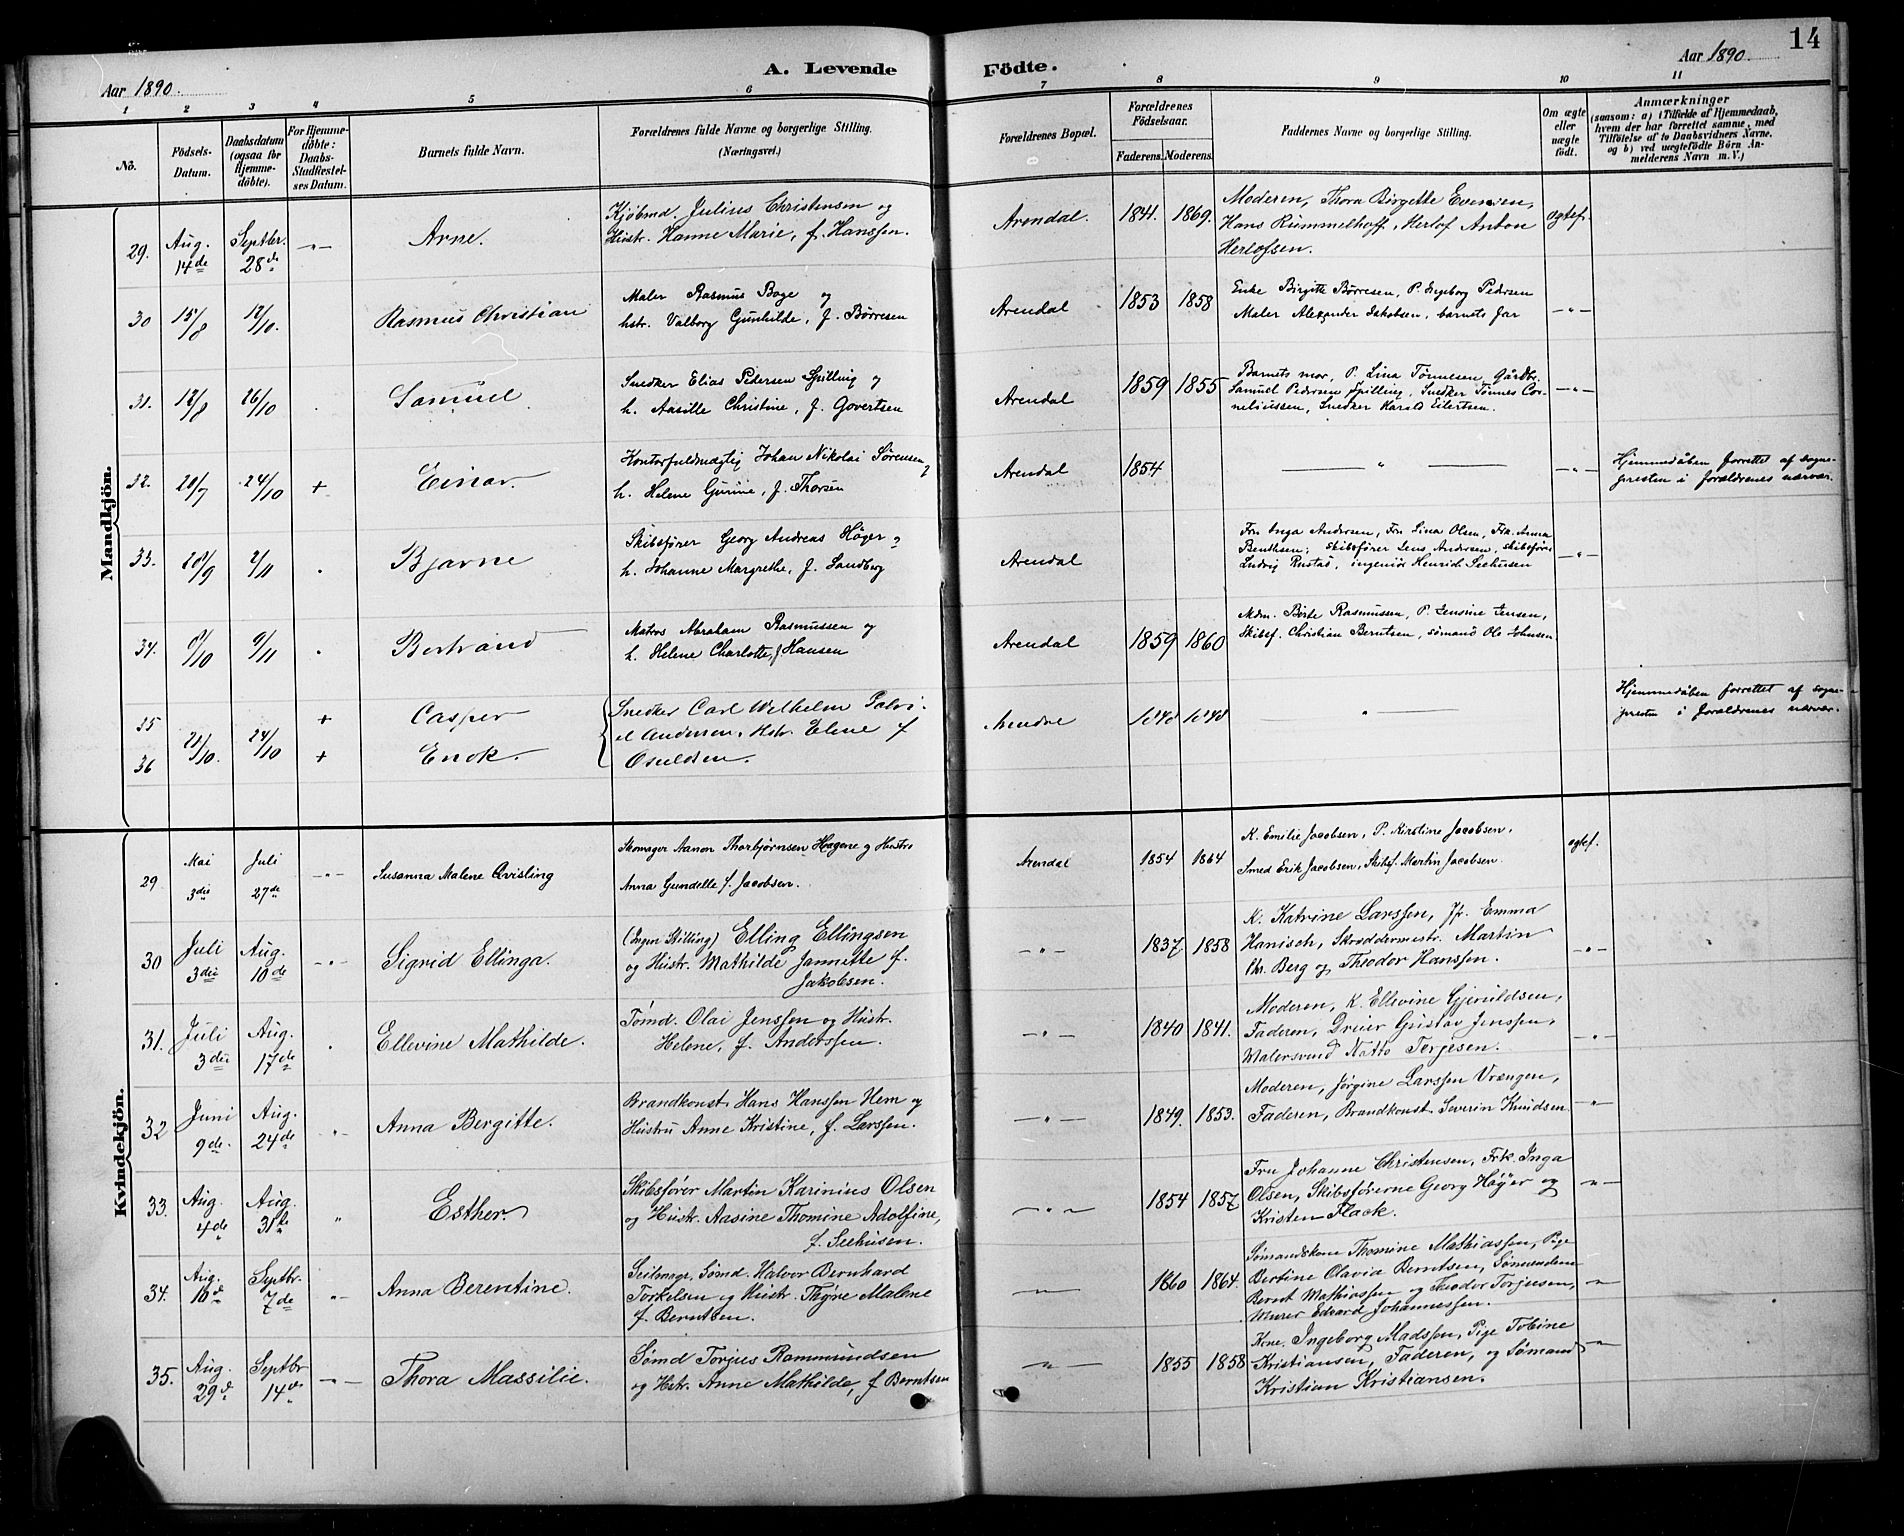 14
Aar 1890.
A. Levende Födte.
Aar 1890.
1 2 3 4 5 6 7 8 9 10 11
No.
Födsels-Datum.
Daabsdatum (ogsaa for Hjemme-döbte).
For Hjemme-döbte: Daabs-Stadfæstel-ses Datum.
Barnets fulde Navn.
Forældrenes fulde Navne og borgerlige Stilling.
(Næringsvei.)
Forældrenes Bopæl.
Forældrenes Födselsaar.
Faderens. Moderens.
Faddernes Navne og borgerlige Stilling.
Om ægte eller uægte födt.
Anmærkninger
(saasom: a) i Tilfælde af Hjemmedaab,
hvem der har forrettet samme, med
Tilföielse af to Daabsvidners Navne,
og b) ved uægtefödte Börn An-
melderens Navn m. V.)
Mandkjön.
29. Aug. 14de Septbr. 28de Arne.
Kjøbmd. Julius Christensen og
Hustr. Hanne Marie, f. Hanssen.
Arendal. 1841. 1869.
Moderen, Thora Birgette Evensen,
Hans Rummelhoff, Herlof Anton
Herlofsen.
ægtef.
30 15/8 12/10. Rasmus Christian
Maler Rasmus Boge og
hstr. Valborg Gunhilde, f. Børresen
Arendal 1853 1858
Enke Birgitte Børresen, P. Ingeborg Pedersen
Maler Alexander Jakobsen, barnets far
31. 12/8 26/10 Samuel
Snedker Elias Pedersen Spilling og
h. Aasille Christine, f. Govertsen
Arendal 1859 1855
Barnets mor, P. Lina Tønnesen, Gårdbr.
Samuel Pedersen Spilling, Snedker Tønnes Cor-
neliussen, Snedker Harald Eilertsen.
32. 20/7 24/10 + Einar.
Kontorfuldmægtig Johan Nikolai Sørensen og
h. Helene Gurine, f. Thorsen
Arendal 1854
Hjemmedåben forrettet af sogne-
presten i forældrenes nærvær.
33. 20/9 2/11 Bjarne
Skibsfører Georg Andreas Høyer og
h. Johanne Margrethe, f. Sandberg
Arendal
Fru Inga Andersen, Fru Lina Olsen, Frk. Anna
Benthsen, skibsfører Jens Andersen, skibsfører
Ludvig Rustad, ingeniør Henrich Seehusen
34. 8/10 9/11 Bertrand
Matros Abraham Rasmussen og
h. Helene Charlotte, f Hansen
Arendal 1859 1860
Mdm. Berte Rasmussen, P. Jensine Jensen,
Skibsf. Christian Berntsen, sømand Ole Johnsen
35 + Casper
36 21/10. 24/10 + Enok.
Snedker Carl Wilhelm Palvi-
el Andersen, Hstr. Elene f
Osuldsen.
Arendal 1848 1848
Hjemmedåben forrettet af sogne-
presten i forældrenes nærvær.
Kvindekjön.
29 Mai 3die Juli 27de Susanna Malene Qvisling
Skomager Aanon Thorbjørnsen Hagene og Hustru
Anna Gundelle f. Jacobsen.
Arendal 1854 1864
K. Emilie Jacobsen, P. Kirstine Jacobsen,
Smed Erik Jacobsen, Skibsf. Martin Jacobsen.
ægtef.
30 Juli 3die Aug. 10de Sigrid Ellinga.
(Ingen Stilling) Elling Ellingsen
og Hustr. Mathilde Jannette f.
Jakobsen.
1837 1858
K. Katrine Larssen, Jfr. Emma
Hanisch, Skræddermestr. Martin
Chr. Berg og Theodor Hanssen.
31. Juli 3die Aug. 17de Ellevine Mathilde.
Tømd. Olai Jenssen og Hustr.
Helene, f. Anderssen.
1840 1841.
Moderen, K. Ellevine Gjeruldsen,
Faderen, Dreier Gustav Jenssen,
Malersvend Natto Terjesen.
32 Juni 9de. Aug. 24de Anna Bergitte.
Brandkonst. Hans Hanssen Hem og
Hustru Anne Kristine, f. Larssen.
1849. 1853.
Moderen, Jørgine Larssen Vrængen,
Faderen, Brandkonst. Severin Knudsen
33. Aug. 4de Aug. 31te Esther.
Skibsfører Martin Karinius Olsen
og Hustr. Aasine Thomine Adolfine,
f. Seehusen.
1854 1857
Fru Johanne Christensen, Frk. Inga
Olsen, Skibsførerne Georg Høyer og
Kristen Flack.
34. Aug. 10de Septbr. 7de Anna Berentine.
Seilmagr. Sømd. Halvor Bernhard
Torkelsen og Hustr. Thyne Malene
f. Berntsen.
1860 1864.
Sømandskone Thomine Mathiassen, Pige
Bertine Olavia Berntsen, Sømændene
Bernt Mathiassen og Teodor Torjusen,
Murer Edvard Johannessen.
35. Aug. 29de Septbr 14de Thora Massilie.
Sømd Torjus Rommundsen
og Hstr. Anne Mathilde, f Berntsen
1855 1858
Kone Ingeborg Madssen, Pige Tobine
Kristiansen, Faderen, og Sømand
Kristian Kristiansen.